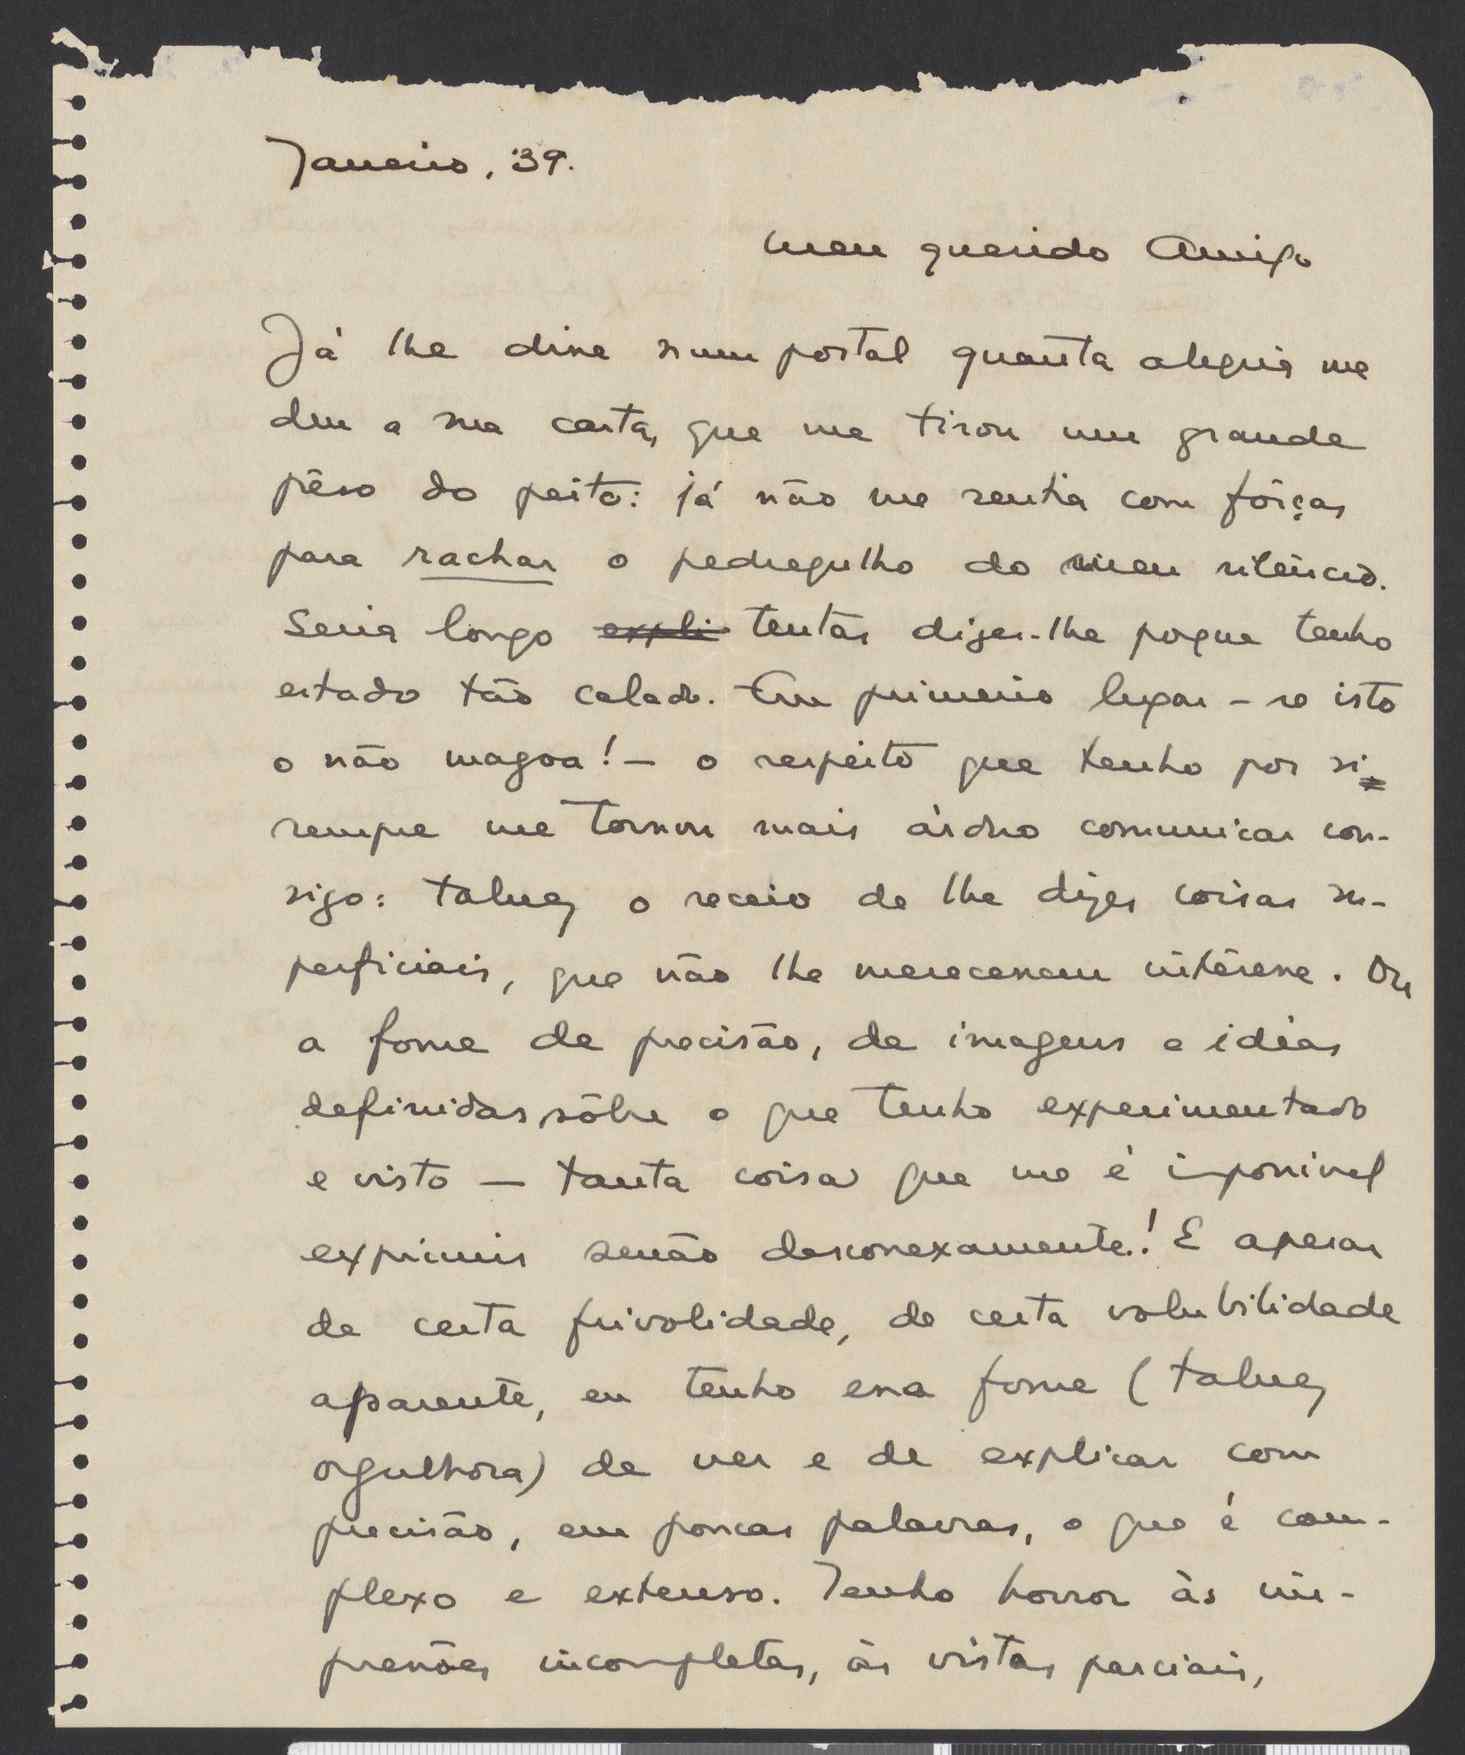 Janeiro, 39.
Meu querido Amigo
Já lhe disse num postal quanta alegria me
deu a sua carta, que me tirou um grande
pêso do peito: já não me sentia com fôrças
para rachar o pedregulho do meu silêncio.
Seria longo expli tentar dizer-lhe porque tenho
estado tão calado. Em primeiro lugar - se isto
o não magoa! - o respeito que tenho por si
sempre me tornou mais árduo comunicar con-
sigo: talvez o receio de lhe dizer coisas su-
perficiais, que não lhe merecessem interêsse. Ou
a fome de precisão, de imagens e idéas
definidas, sôbre o que tenho experimentado
e visto — tanta coisa que me é impossivel
exprimir senão desconexamente! E apesar
de certa frivolidade, de certa volubilidade
aparente, eu tenho essa fome (talvez
orgulhosa) de ver e de explicar com
precisão, em poucas palavras, o que é com-
plexo e extenso. Tenho horror às im-
pressões incompletas, às vistas parciais,